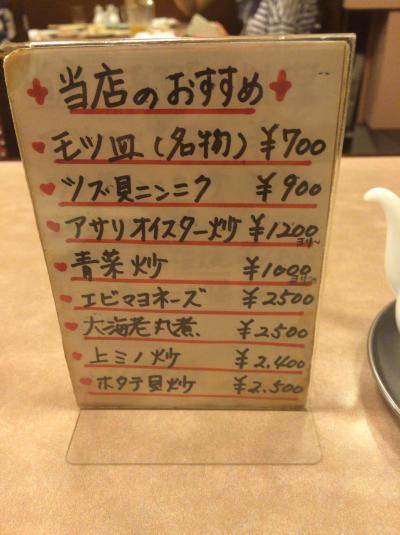 当店のおすすめ
モツ皿(名物) ¥700
ツブ貝ニンニク ¥900
アサリオイスター炒 ¥1200ヨリ〜
青菜炒 ¥1000ヨリ〜
エビマヨネーズ ¥2500
大海老丸煮 ¥2500
上ミノ炒 ¥2.400
ホタテ貝炒 ¥2.500